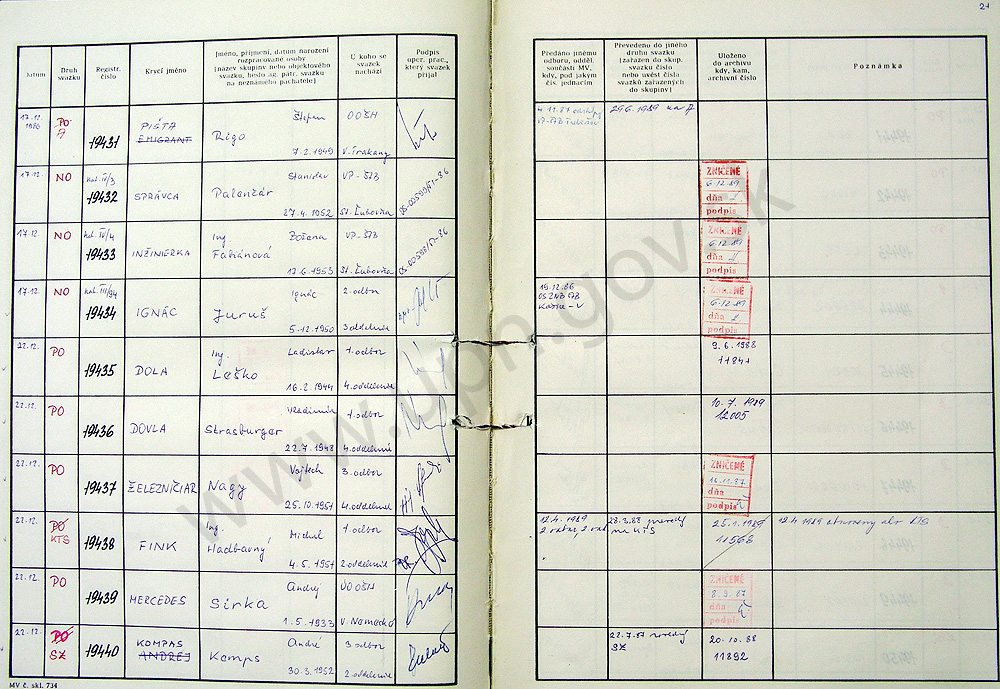 21
Datum
Druh svazku
Registr. číslo
Krycí jméno
Jméno, příjmení, datum narození
rozpracované osoby
(název skupiny nebo objektového
svazku, heslo ag. pátr. svazku
na neznámého pachatele)
U koho se
svazek
nachází
Podpis
oper. prac.,
který svazek
přijal
Předáno jinému
odboru, odděl.
součásti MV,
kdy, pod jakým
čís. jednacím
Převedeno do jiného
druhu svazku
(zařazen do skup.
svazku číslo
nebo uvést čísla
svazků zařazených
do skupiny)
Uloženo
do archivu
kdy, kam,
archivní číslo
Poznámka
17.12. 1986 PO A 19431 PIŠTA EMIGRANT Štefan Rigo 7.2.1949 OOŠH V. Trakany
4.11.87
29.6.1989 na A
17.12. NO 19432 SPRÁVCA Stanislav Palenžár 27.4.1952 VP-ŠtB St. Ľubovňa
ZNIČENÉ
6.12.89
dňa
podpis
17.12. NO 19433 INŽINIERKA Ing Božena Fabiánová 17.6.1953 VP-ŠtB St. Ľubovňa
ZNIČENÉ
6.12.89
dňa
podpis
17.12. NO 19434 IGNÁC Ignác Juruš 5.12.1950 2. odbor 3 oddelenie
19.12.86
ZNIČENÉ
6.12.89
dňa
podpis
22.12. PO 19435 DOLA Ing. Ladislav Leško 16.2.1944 1. odbor 4. oddelenie
9.6.1988
22.12. PO 19436 DOVLA Vladimír Strasburger 22.7.1948 1. odbor 4. oddelenie
10.7.1989
12005
22.12. PO 19437 ŽELEZNIČIAR Vojtech Nagy 25.10.1951 3. odbor 4. oddelenie
ZNIČENÉ
16.11.87
dňa
podpis
22.12. PO KTS 19438 FINK Ing Michal Hadbavný 4.5.1951 1. odbor 2 oddelenie
12.4.1989
28.3.88
25.1.1989
11568
12.4.1989
22.12. PO 19439 MERCEDES Andrej Sirka 1.5.1933 V. Nemecko
ZNIČENÉ
8.9.87
dňa
podpis
22.12. PO SZ 19440 KOMPAS ANDREJ André Kemps 30.3.1952 3 odbor 2 oddelenie
22.7.87
SZ
20.10.88
11892
MV č. skl. 734
www.upn.gov.sk